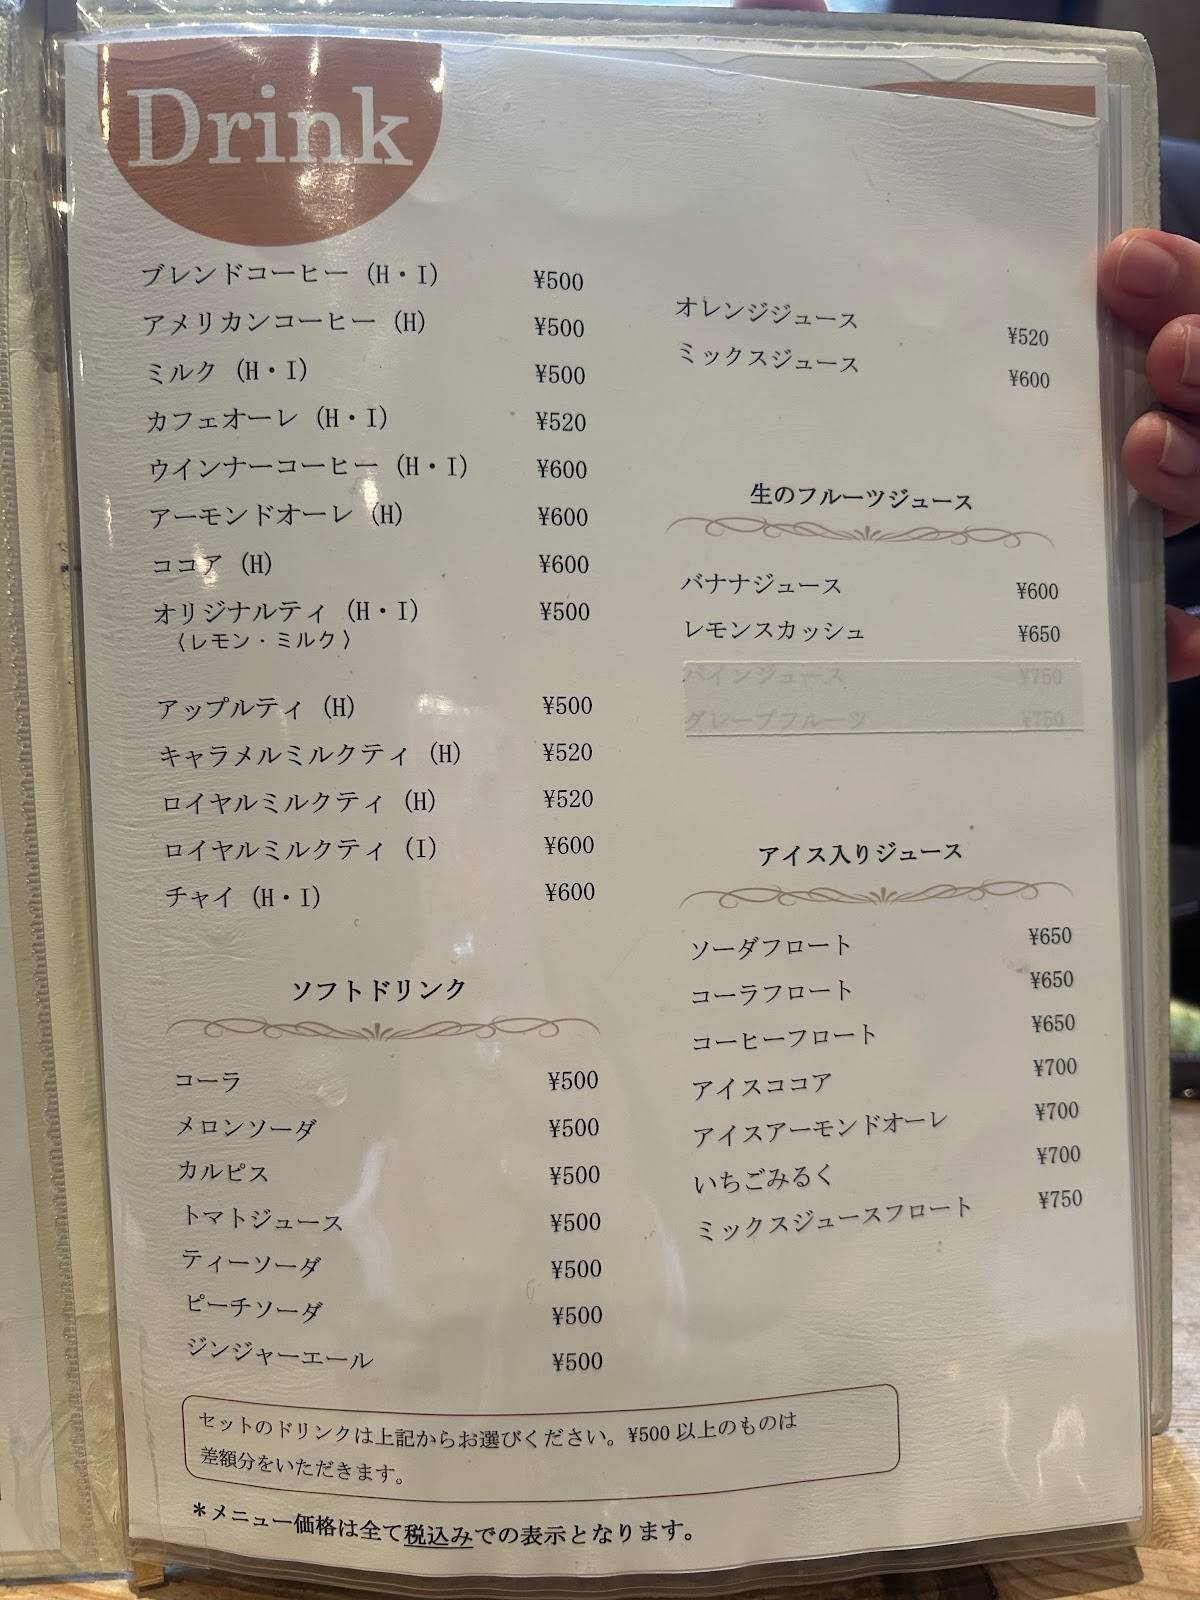 Drink
ブレンドコーヒー (H・I) ¥500
アメリカンコーヒー (H) ¥500
ミルク (H・I) ¥500
カフェオーレ (H・I) ¥520
ウインナーコーヒー (H・I) ¥600
アーモンドオーレ (H) ¥600
ココア (H) ¥600
オリジナルティ (H・I) ¥500
〈レモン・ミルク〉
アップルティ (H) ¥500
キャラメルミルクティ (H) ¥520
ロイヤルミルクティ (H) ¥520
ロイヤルミルクティ (I) ¥600
チャイ (H・I) ¥600
ソフトドリンク
コーラ ¥500
メロンソーダ ¥500
カルピス ¥500
トマトジュース ¥500
ティーソーダ ¥500
ピーチソーダ ¥500
ジンジャーエール ¥500
オレンジジュース ¥520
ミックスジュース ¥600
生のフルーツジュース
バナナジュース ¥600
レモンスカッシュ ¥650
パインジュース ¥750
グレープフルーツ ¥750
アイス入りジュース
ソーダフロート ¥650
コーラフロート ¥650
コーヒーフロート ¥650
アイスココア ¥700
アイスアーモンドオーレ ¥700
いちごみるく ¥700
ミックスジュースフロート ¥750
セットのドリンクは上記からお選びください。¥500 以上のものは
差額分をいただきます。
＊メニュー価格は全て税込みでの表示となります。